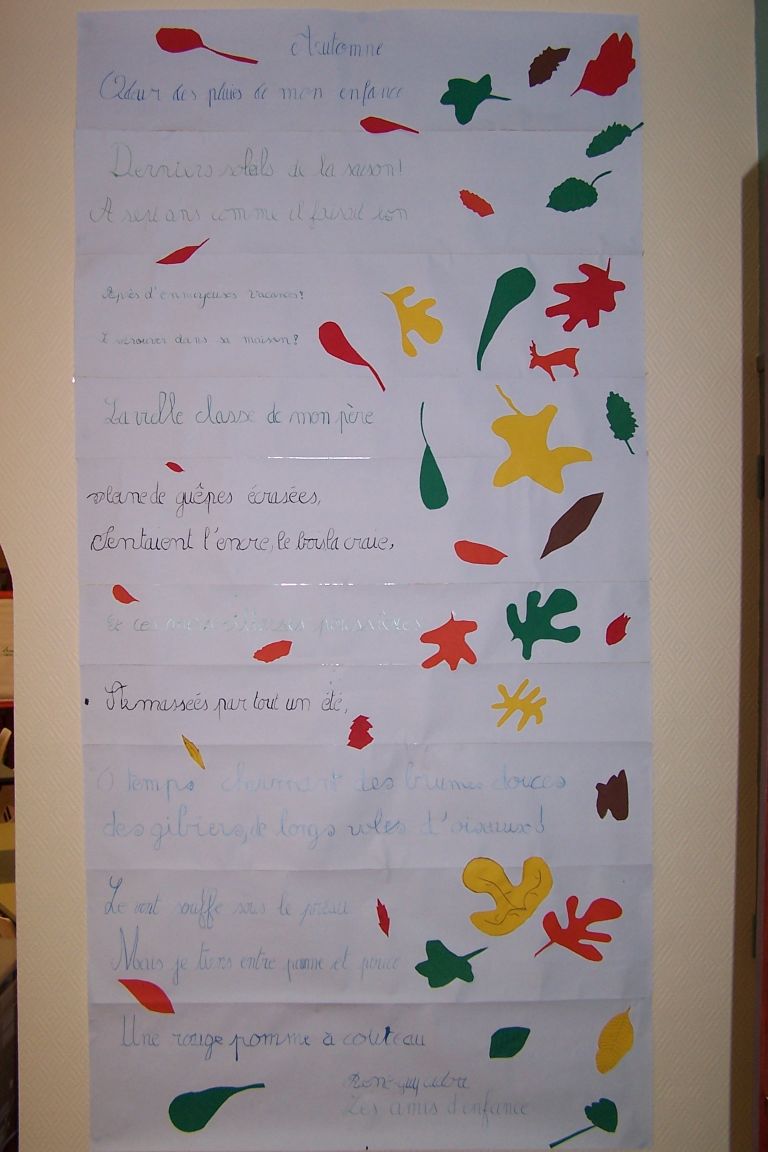 Automne
Odeur des pluies de mon enfance
Derniers soleils de la saison!
A sept ans comme il faisait bon
Après d'ennuyeuses vacances!
Se retrouver dans sa maison!
La vieille classe de mon père
pleine de guêpes écrasées,
Sentaient l'encre, le bois, la craie,
Et ces merveilleuses poussières
Amassées par tout un été,
O temps charmant des brumes douces
des gibiers, de longs vols d'oiseaux!
Le vent souffle sous le préau
Mais je tiens entre paume et pouce
Une rouge pomme à couteau
René guy cadou
Les amis d'enfance